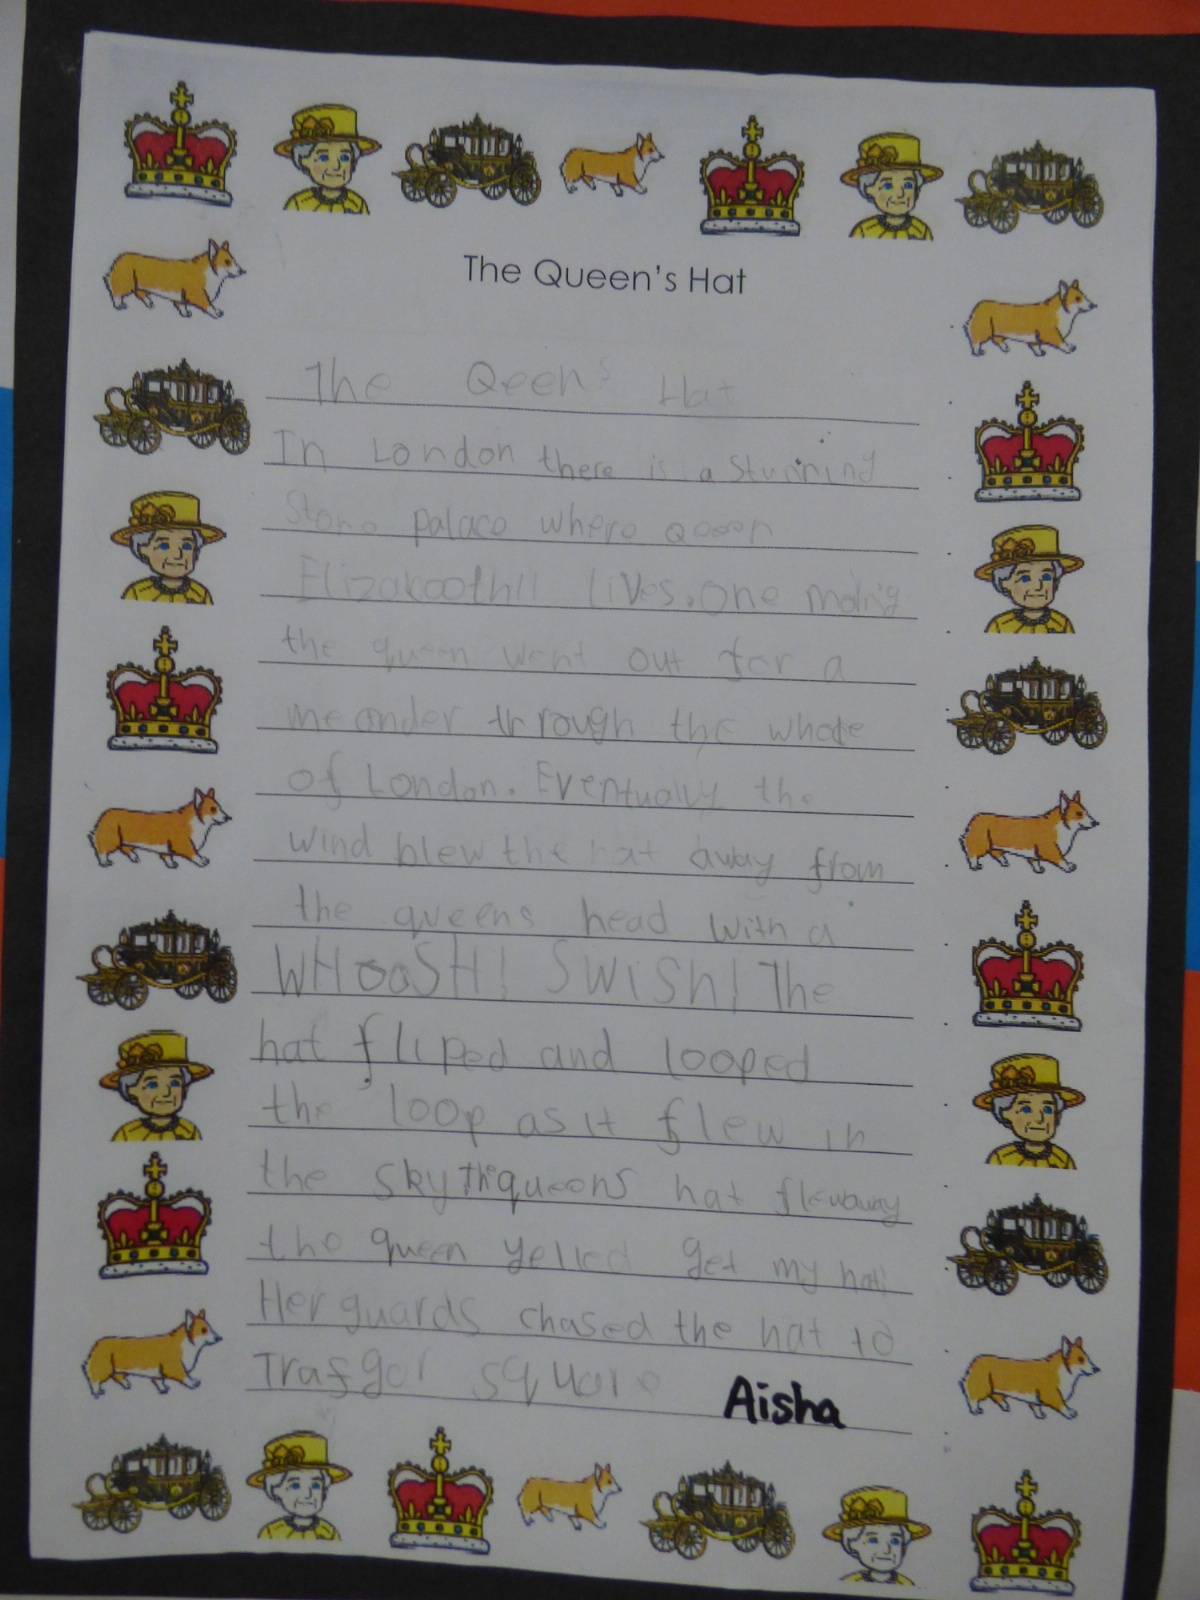 The Queen's Hat
The Qeen's Hat
In London there is a stunning
Stone palace where queen
lives. One
the queen went out for a
meander through the whole
of London. Eventually the
wind blew the hat away from
the queens head with a
WHooSH! SWiSH! The
hat fliped and looped
the loop as it flew in
the sky the queens hat flew away
the queen yelled get my hat!
Her guards chased the hat to
Trafgar square
Aisha